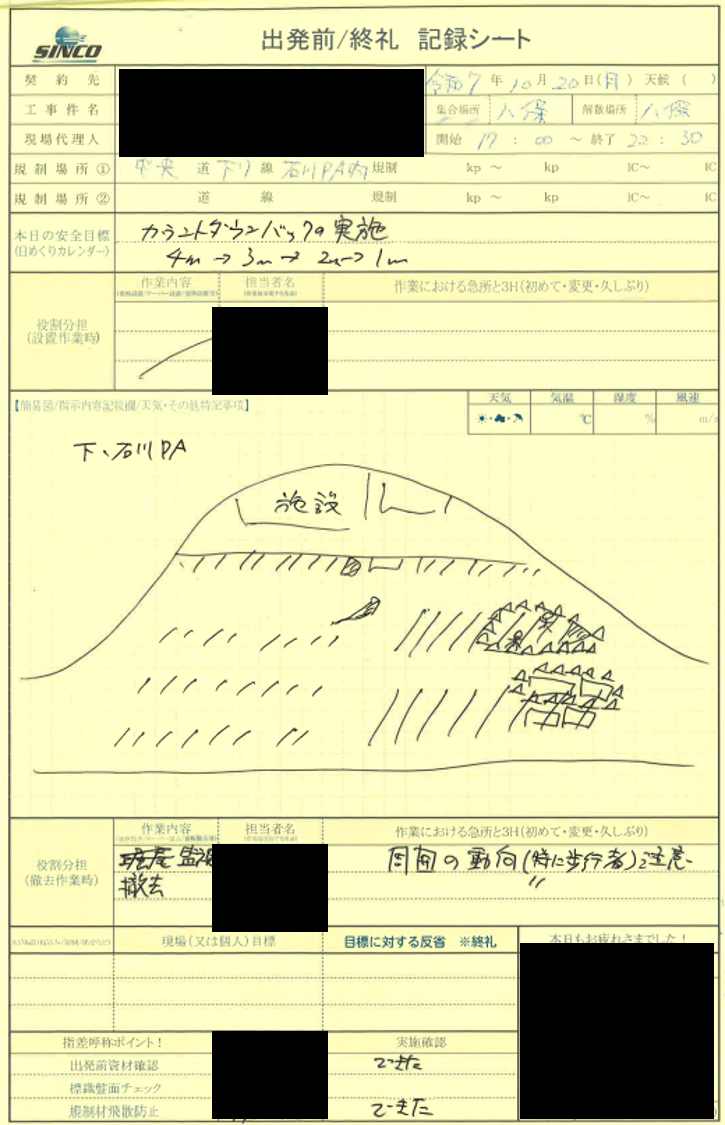 SINCO
出発前/終礼 記録シート
契約先
令和7年10月20日(月) 天候( )
工事件名
集合場所 八保 解散場所 八保
現場代理人
開始 17:00 ～ 終了 22:30
規制場所① 中央 道 下り 線 石川PA内 規制 kp ～ kp IC～ IC
規制場所② 道 線 規制 kp ～ kp IC～ IC
本日の安全目標
(日めくりカレンダー)
カウントダウンバックの実施
4m→3m→2m→1m
役割分担
(設置作業時)
作業内容
担当者名
作業における急所と3H(初めて・変更・久しぶり)
【簡易図/指示内容記録欄/天気・その他特記事項】
天気 気温 湿度 風速
℃ % m/s
下、石川PA
施設
役割分担
(撤去作業時)
作業内容
担当者名
作業における急所と3H(初めて・変更・久しぶり)
監視
周囲の動向(特に歩行者)注意
撤去
〃
現場(又は個人)目標
目標に対する反省 ※終礼
本日もお疲れさまでした!
指差呼称ポイント!
実施確認
出発前資材確認
できた
標識盤面チェック
規制材飛散防止
できた